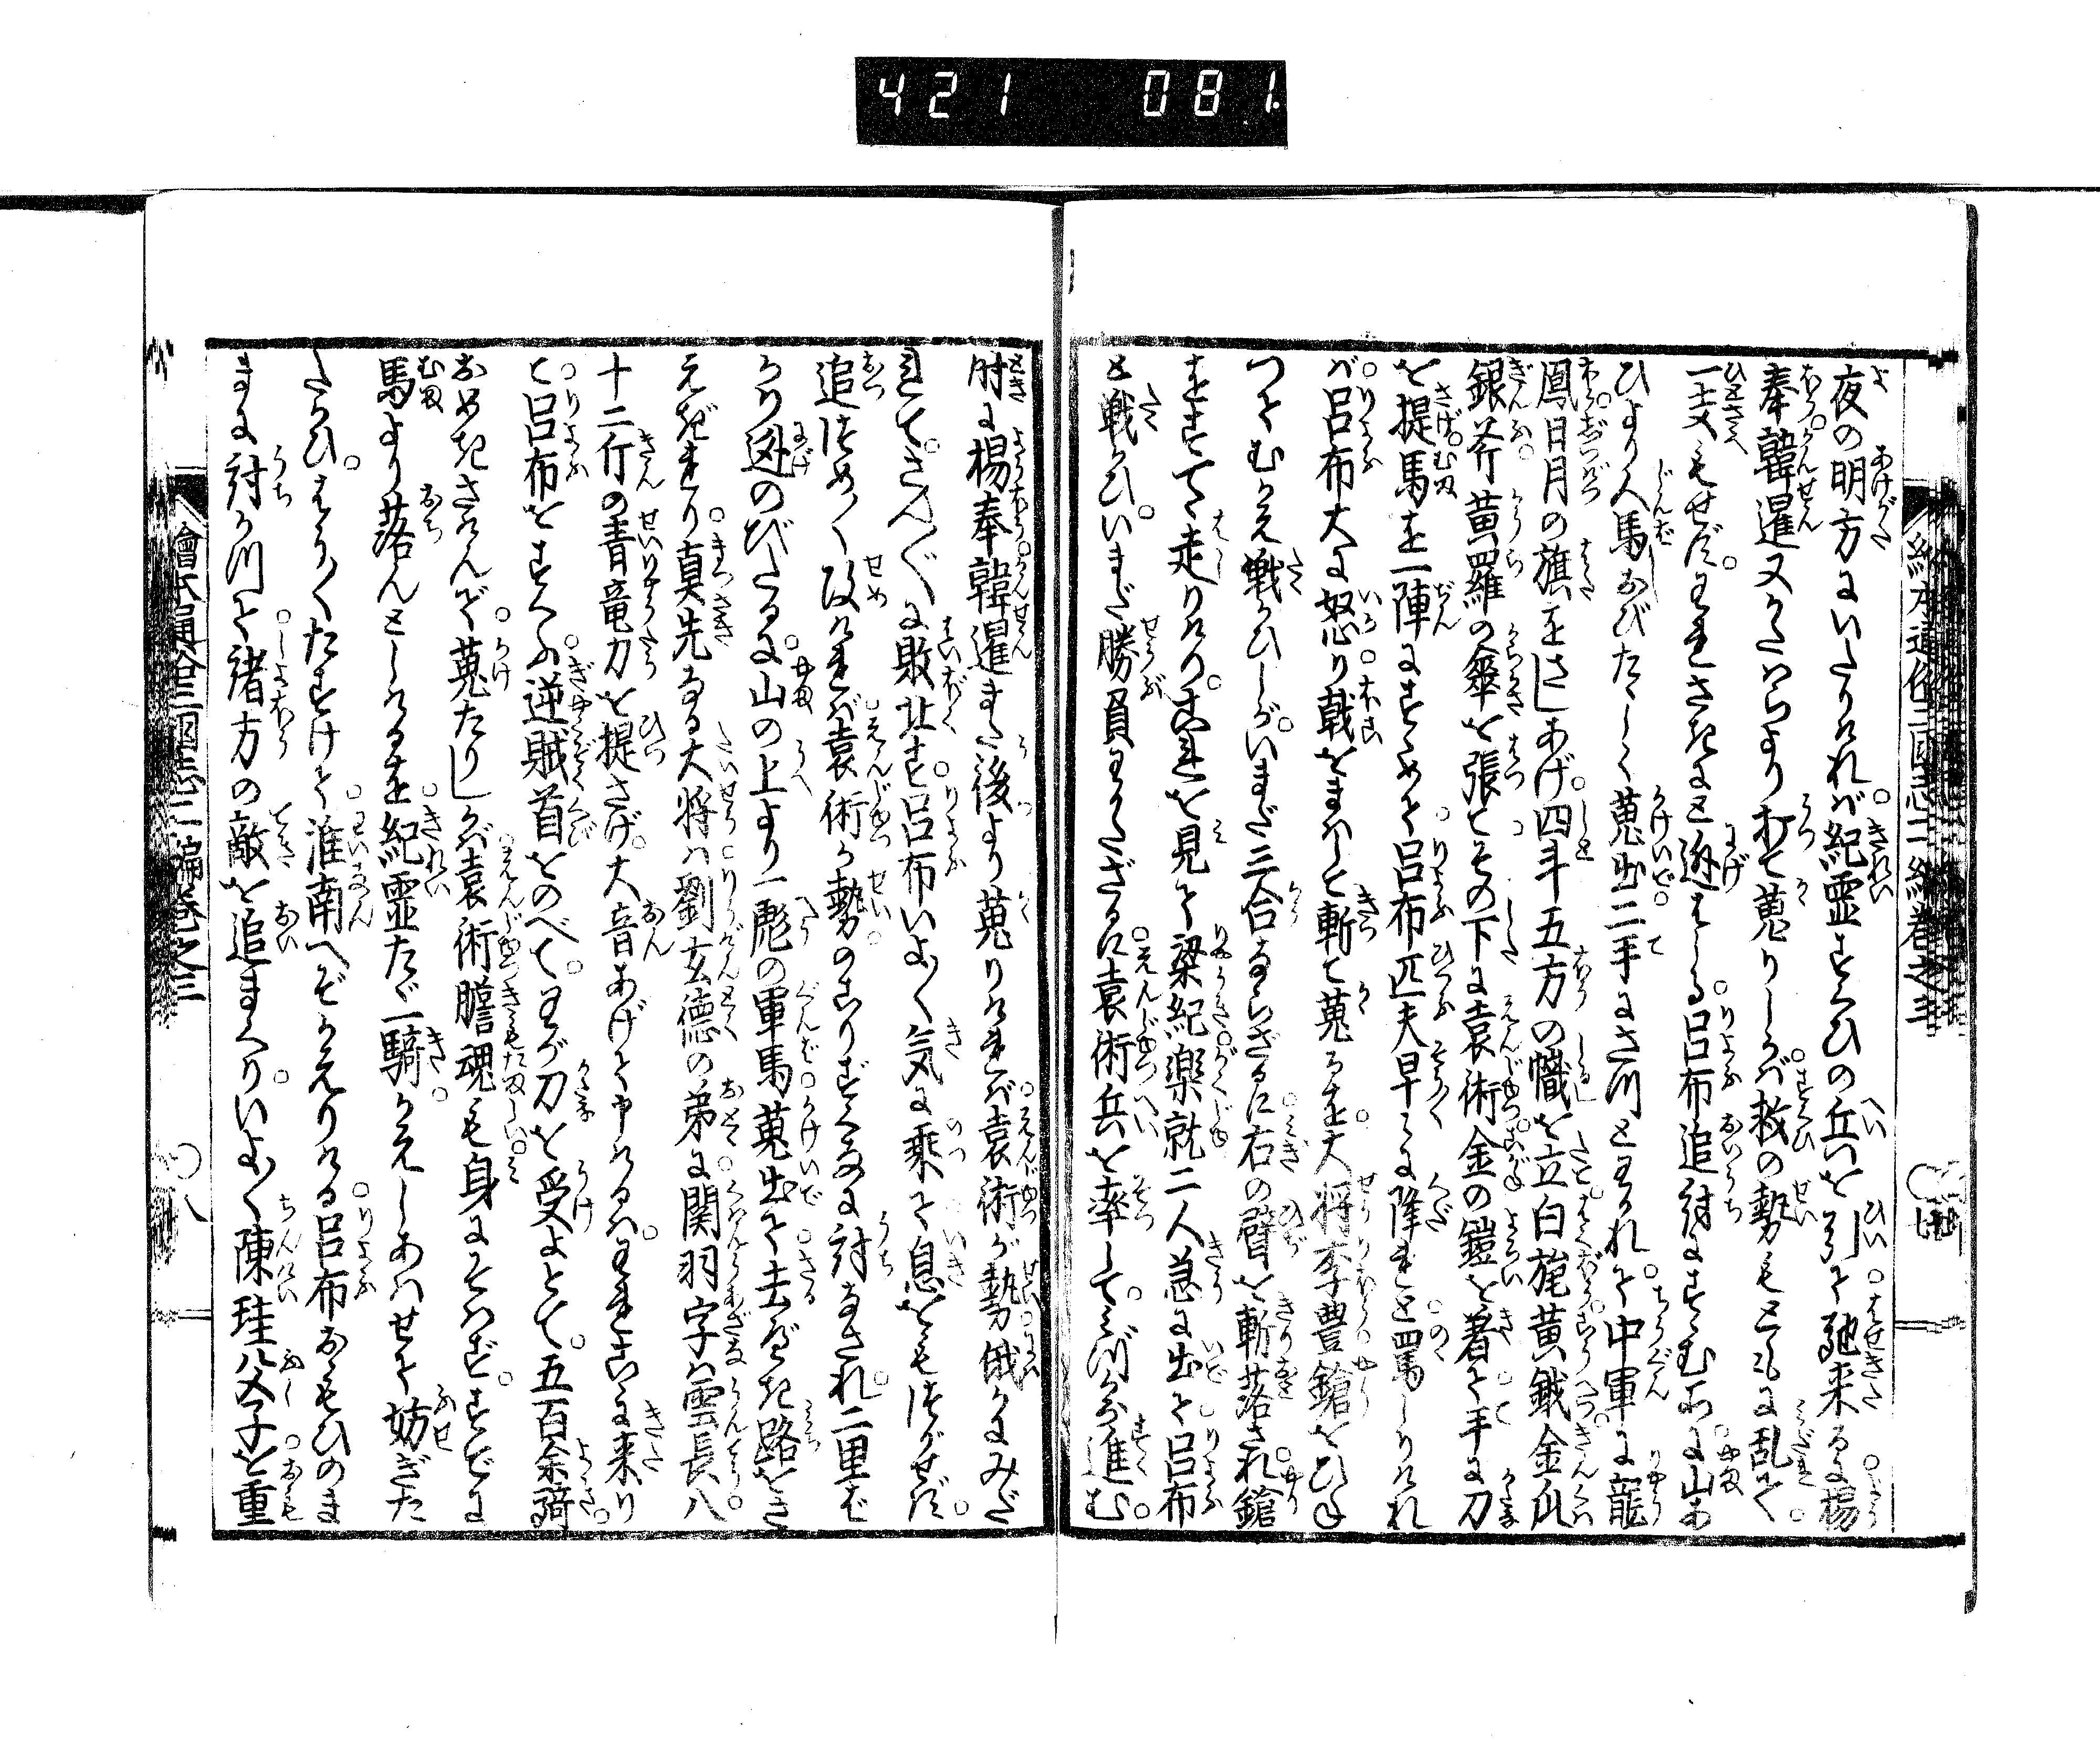 421 081.
夜の明方にいたりければ。紀霊すくひの兵を引て馳来るに楊
奉韓暹又かたはらより打て蒐りしかば。救の勢もともに乱て。
一支もせず。われさきにと逃はしる。呂布追討にすゝむ所に。山あ
ひより人馬おびたゝしく蒐出。二手にさつとわかれて。中軍に龍
鳳日月の旗をさしあげ。四斗五方の幟を立。白旄黄鉞金瓜
銀斧。黄羅の傘を張て。その下に袁術金の鎧を着て。手に刀
を提。馬を一陣にすゝめて。呂布匹夫早々に降れと罵しりけれ
ば。呂布大に怒り。戟をまはして斬て蒐るを。大将李豊鎗をひね
つてむかへ戦ひしが。いまだ三合ならざるに。右の臂を斬落され。鎗
をすてゝ走りけり。これを見て梁紀。楽就二人急に出て。呂布
と戦ひ。いまだ勝負わかたざるに。袁術兵を率して。みづから進む。
時に楊奉。韓暹また後より蒐りければ。袁術が勢。俄かにみだ
れて。さんざんに敗北す。呂布いよ〳〵気に乗て。息をもつがせず。
追つめ〳〵攻ければ。袁術が勢。のこりずくなに討なされ。二里ば
かり逃のびたるに。山の上より一彪の軍馬。蒐出て。去べき路をさ
えぎれり。真先なる大将は。劉玄徳の弟に。関羽字は雲長。八
十二斤の青竜刀を提さげ。大音あげて申けるは。われこゝに来り
て。呂布をすくふ。逆賊首をのべて。わが刀を受よとて。五百余騎
おめきさけんで。蒐たりしかば。袁術膽魂も。身にそはず。すでに
馬より落んとしけるを。紀霊たゞ一騎。かえしあはせて妨ぎた
たかひ。はう〳〵たすけて。淮南へぞかえりける。呂布おもひのま
まに討かつて。諸方の敵を追まくり。いよ〳〵陳珪父子を重
繪本通俗三國志二編巻之三
八